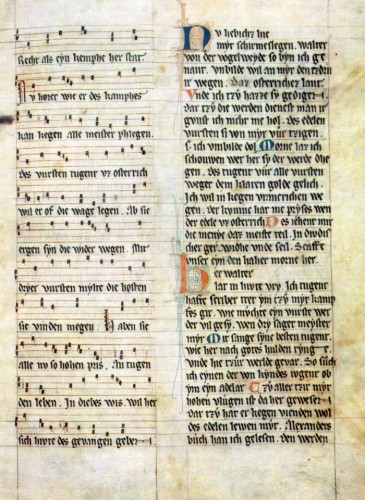 Recht als eyn kemphe her stat.
Nv horet wie er des kamphes
kan kegen alle meister phlegen.
des vursten tugent vz osterich
wil er of die wage legen. Ab sie
ergen syn die wider wegen. Mit
dryer vursten mylte die hosten
sie vinden megen. Haben sie
alle nv so hohen pris. An tugen
den leben. In wis. wil her
sich hivte des gevangen geben
Nv hie
myr schirmeslegen. Walter
von der vogelweyde so byn ich ge
nant. vnbilde wil an myr den tzorn
ir wegen. Daz osterricher lant.
Vnde ich tzv hazze sy
Daz tzv die werden dienest man ir
gonst ich me hol. des edelen
vursten von myr vur tzigen.
ich vmbilde dol. Morne laz ich
schouwen wer her sy der werde
gen. des tugent vur alle vursten
weget dem golde gelich.
Ich wil in kegen we
gen. der kvninc hat me pryses wen
der edele vz osterrich Des ichent mir
die meyte daz meist teil. In
cher ger. widhe vnde seil.
vnser eyn den haher morne her.
Her walter
dar in hivte vry. Ich tugent
hafte scriber tret yn tzv myr kamp
fes gir. wie mychte eyn vurste wer
der vil gesy. wen dry saget meister
myr Mit sange syne besten tugent.
wie her nach gotes hulden ryng
vnde hie tzur werlde gevar. So
ich eynen der von kyndes ugent ob
ym eyn adelar Tzv aller tzit myt
hohen vlugen ist da her geweset
Dar tzv hat er kegen vienden wol
des edelen lewen myt. Alexanders
buch han ich gelesen. Den werden